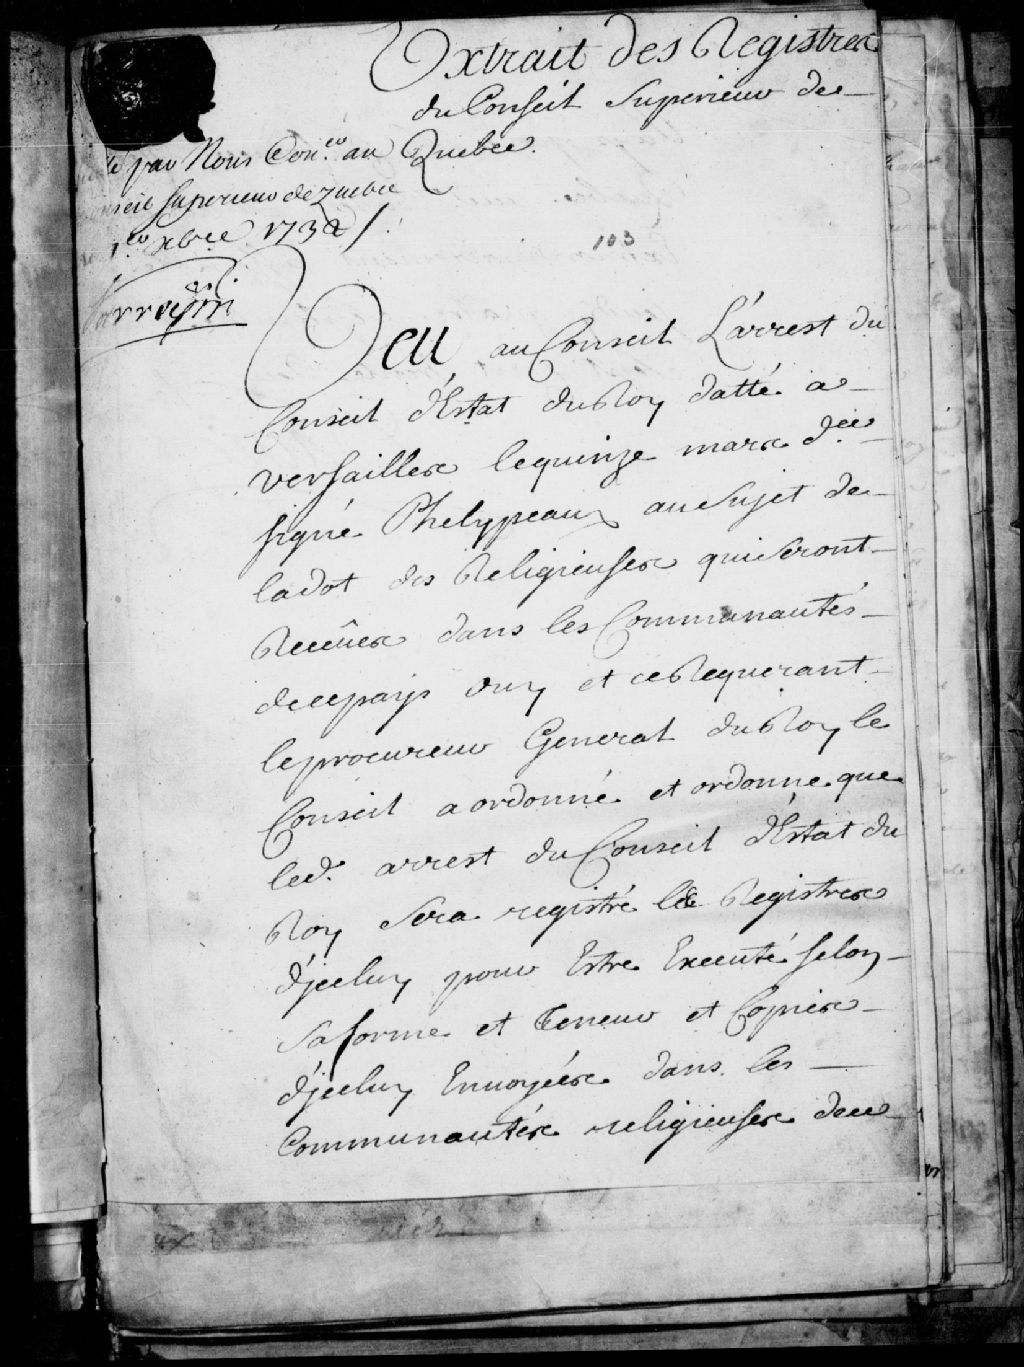 Extrait des Registres
du Conseil Superieur de
Quebec.
par Nous Con.er au
Conseil Superieur de quebec
1732
Sarrazin
103
Veu au Conseil L'arrest du
Conseil d'Estat du Roy datté a
versailles le quinze mars d.er
signé Phelypeaux au Sujet de
la dot des Religieuses qui seront
Receües dans les Communautés
de ce pays ouy et ce Requerant
le procureur General du Roy le
Conseil a ordonné et ordonne que
led. arrest du Conseil d'Estat du
Roy sera registré és Registres
d'jceluy pour Estre Executé selon
sa forme et teneur et Copies
d'jceluy Envoyées dans les
Communautés religieuses de ce